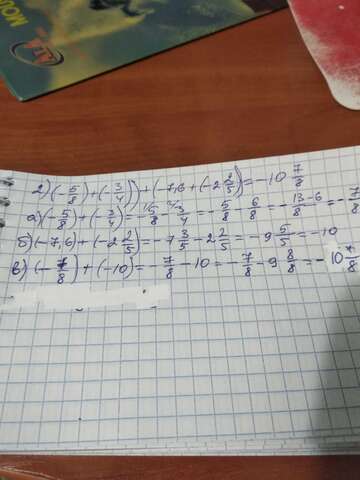 MODU
2) (-5/8) + (-3/4)) + (-7,6 + (-2 2/5) = -10 7/8
а) (-5/8) + (-3/4) = -5/8 - 3/4 = -5/8 - 6/8 = -13-6/8 = -7/8
б) (-7,6) + (-2 2/5) = -7 3/5 - 2 2/5 = -9 5/5 = -10
в) (-7/8) + (-10) = -7/8 - 10 = -7/8 - 9 8/8 = -10 7/8